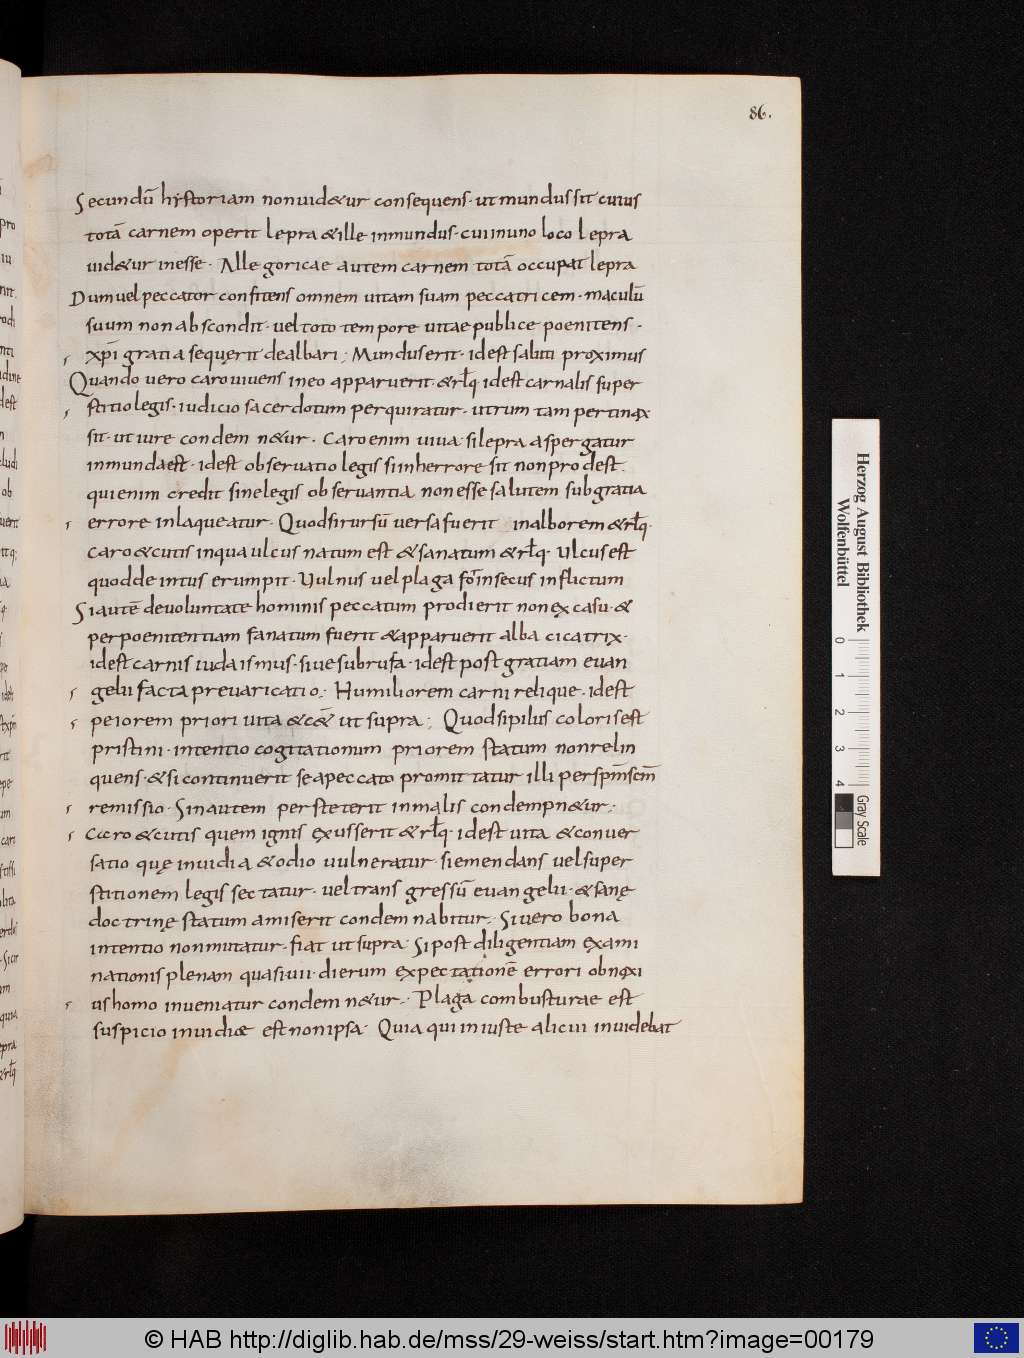 86.
Secundū hystoriam non uid&ur consequens· ut mundus sit cuius
totā carnem operit lepra & ille inmundus· cui in uno loco lepra
uid&ur inesse· Allegoricae autem carnem totā occupat lepra
Dum uel peccator confitens omnem uitam suam peccatricem· maculū
suum non abscondit· uel toto tempore uitae publice poenitens·
xp̄i gratia sequęrit dealbari; Mundus erit· id est saluti proximus
Quando uero caro uiuens in eo apparuerit· & rl̄q id est carnalis super
stitio legis· iudicio sacerdotum perquiratur· utrum tam pertinax
sit· ut iure condemn&ur· Caro enim uiua· si lepra aspergatur
inmunda est· id est obseruatio legis si inherrore sit non prodest·
qui enim credit sine legis obseruantia non esse salutem sub gratia
errore inlaqueatur· Quod si rursū uersa fuerit in alborem & rl̄q·
caro & cutis in qua ulcus natum est & sanatum & rl̄q· Ulcus est
quod de intus erumpit· Uulnus uel plaga forinsecus inflictum
Si autē de uoluntate hominis peccatum prodierit non ex casu· &
per poenitentiam sanatum fuerit & apparuerit alba cicatrix·
id est carnis iudaismus· siue subrufa· id est post gratiam euan
gelii facta preuaricatio; Humiliorem carni relique· id est
peiorem priori uita & cę̄ ut supra; Quod si pilus coloris est
pristini· intentio cogitationum priorem statum non relin
quens· & si continuerit se a peccato promittatur illi per sp̄m sc̄m
remissio· Sin autem persteterit in malis condempn&ur;
Caro & cutis quem ignis exusserit & rl̄q· id est uita & conuer
satio quę inuidia & odio uulneratur· si emendans uel super
stitionem legis sectatur· uel transgressū euangelii· & sanę
doctrinę statum amiserit condemnabitur· Si uero bona
intentio non mutatur· fiat ut supra· Si post diligentiam exami
nationis plenam quasi uii· dierum expectationē errori obnoxi
us homo inueniatur condemn&ur· Plaga combusturae est
suspicio inuidiae est non ipsa· Quia qui iniuste alicui inuidebat
Herzog August Bibliothek
Wolfenbüttel
0 1 2 3 4
Gray Scale
© HAB http://diglib.hab.de/mss/29-weiss/start.htm?image=00179